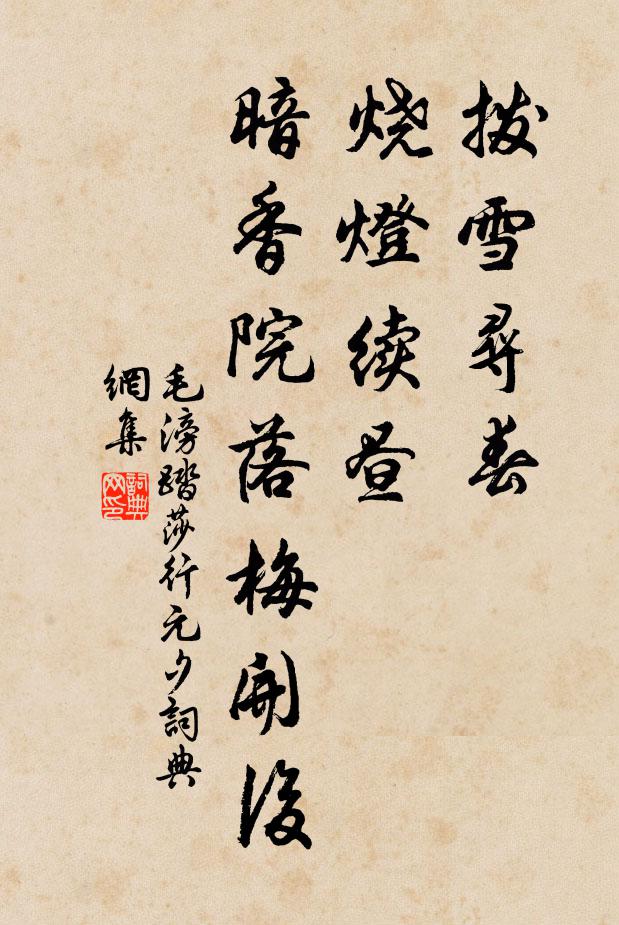 拨雪尋春
烧燈续昼
暗香院落梅開後
毛滂踏莎行元夕詞典
網集
詞典网印